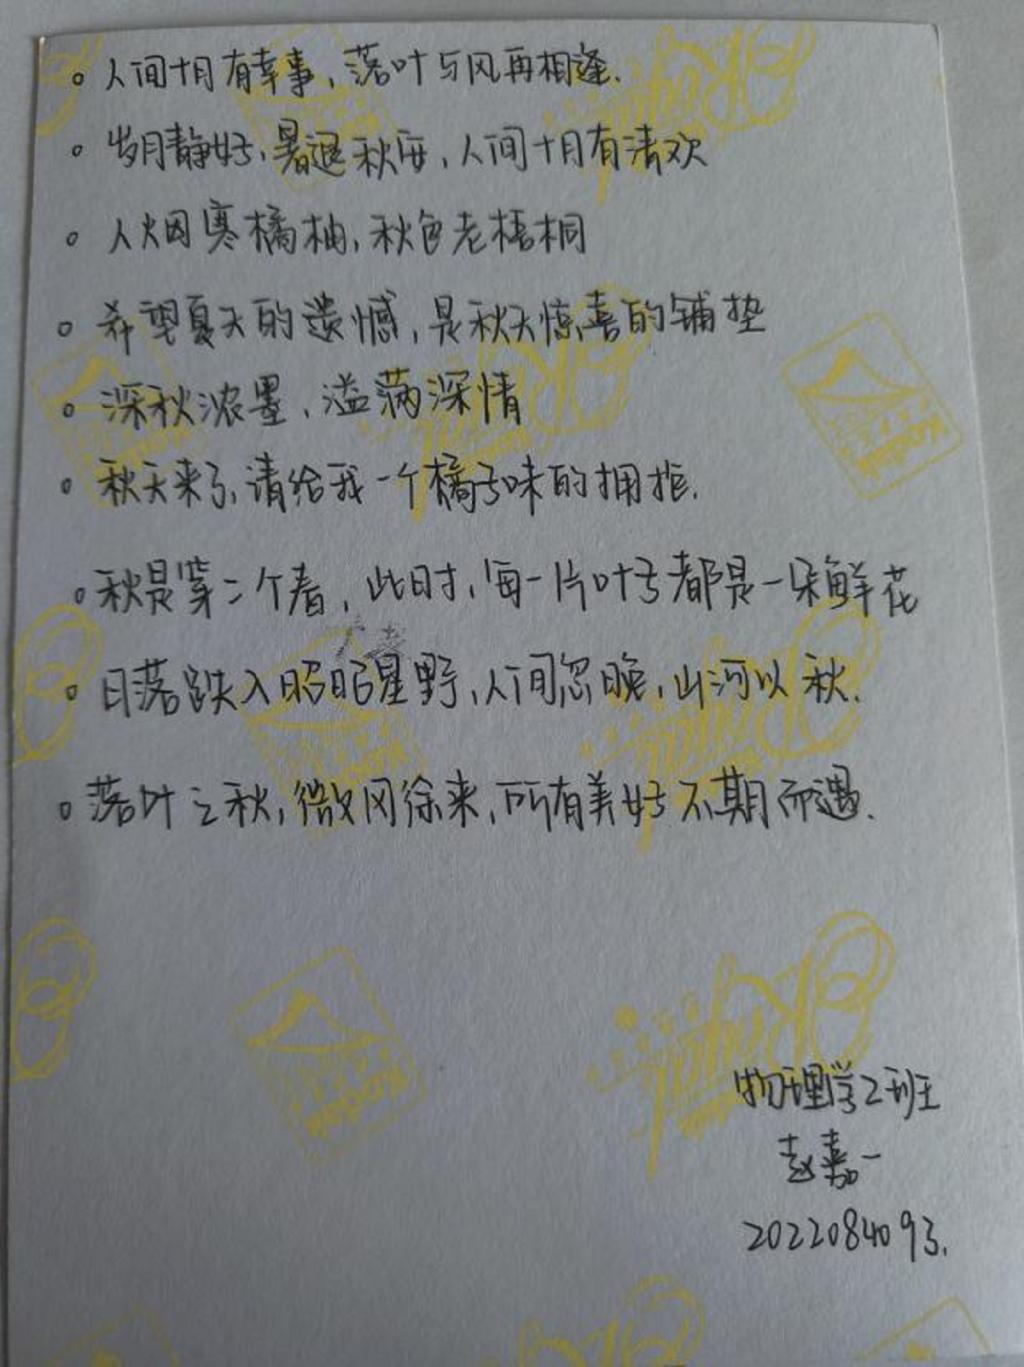 。人间十月有幸事，落叶与风再相逢.
。岁月静好，暑退秋至，人间十月有清欢
。人烟寒橘柚，秋色老梧桐
。希望夏天的遗憾，是秋天惊喜的铺垫
。深秋浓墨，溢满深情
。秋天来了，请给我一个橘子味的拥抱.
。秋是第二个春，此时，每一片叶子都是一朵鲜花
。日落跌入昭昭星野，人间忽晚，山河以秋.
。落叶之秋，微风徐来，所有美好不期而遇.
物理学2班
赵嘉一
2022084093.